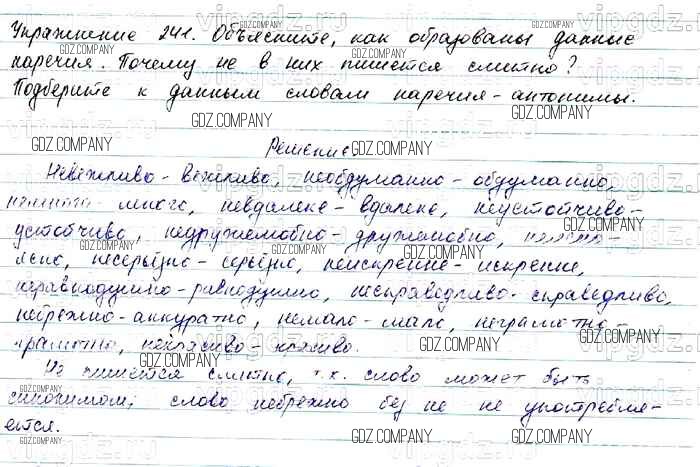 Упражнение 241. Объясните, как образованы данные
наречия. Почему не в них пишется слитно?
Подберите к данным словам наречия-антонимы.
Решение.
Невежливо - вежливо, необдуманно - обдуманно,
много, невдалеке - вдалеке, неустойчиво -
устойчиво, недружелюбно - дружелюбно,
несерьёзно - серьёзно, неискренне - искренне,
неравнодушно - равнодушно, несправедливо - справедливо,
небрежно - аккуратно, немало - мало, неграмотно -
грамотно, некрасиво - красиво.
пишется слитно, т.к. слово может быть
синонимом; слово небрежно без не не употребля-
ется.
GDZ.COMPANY
vipgdz.ru